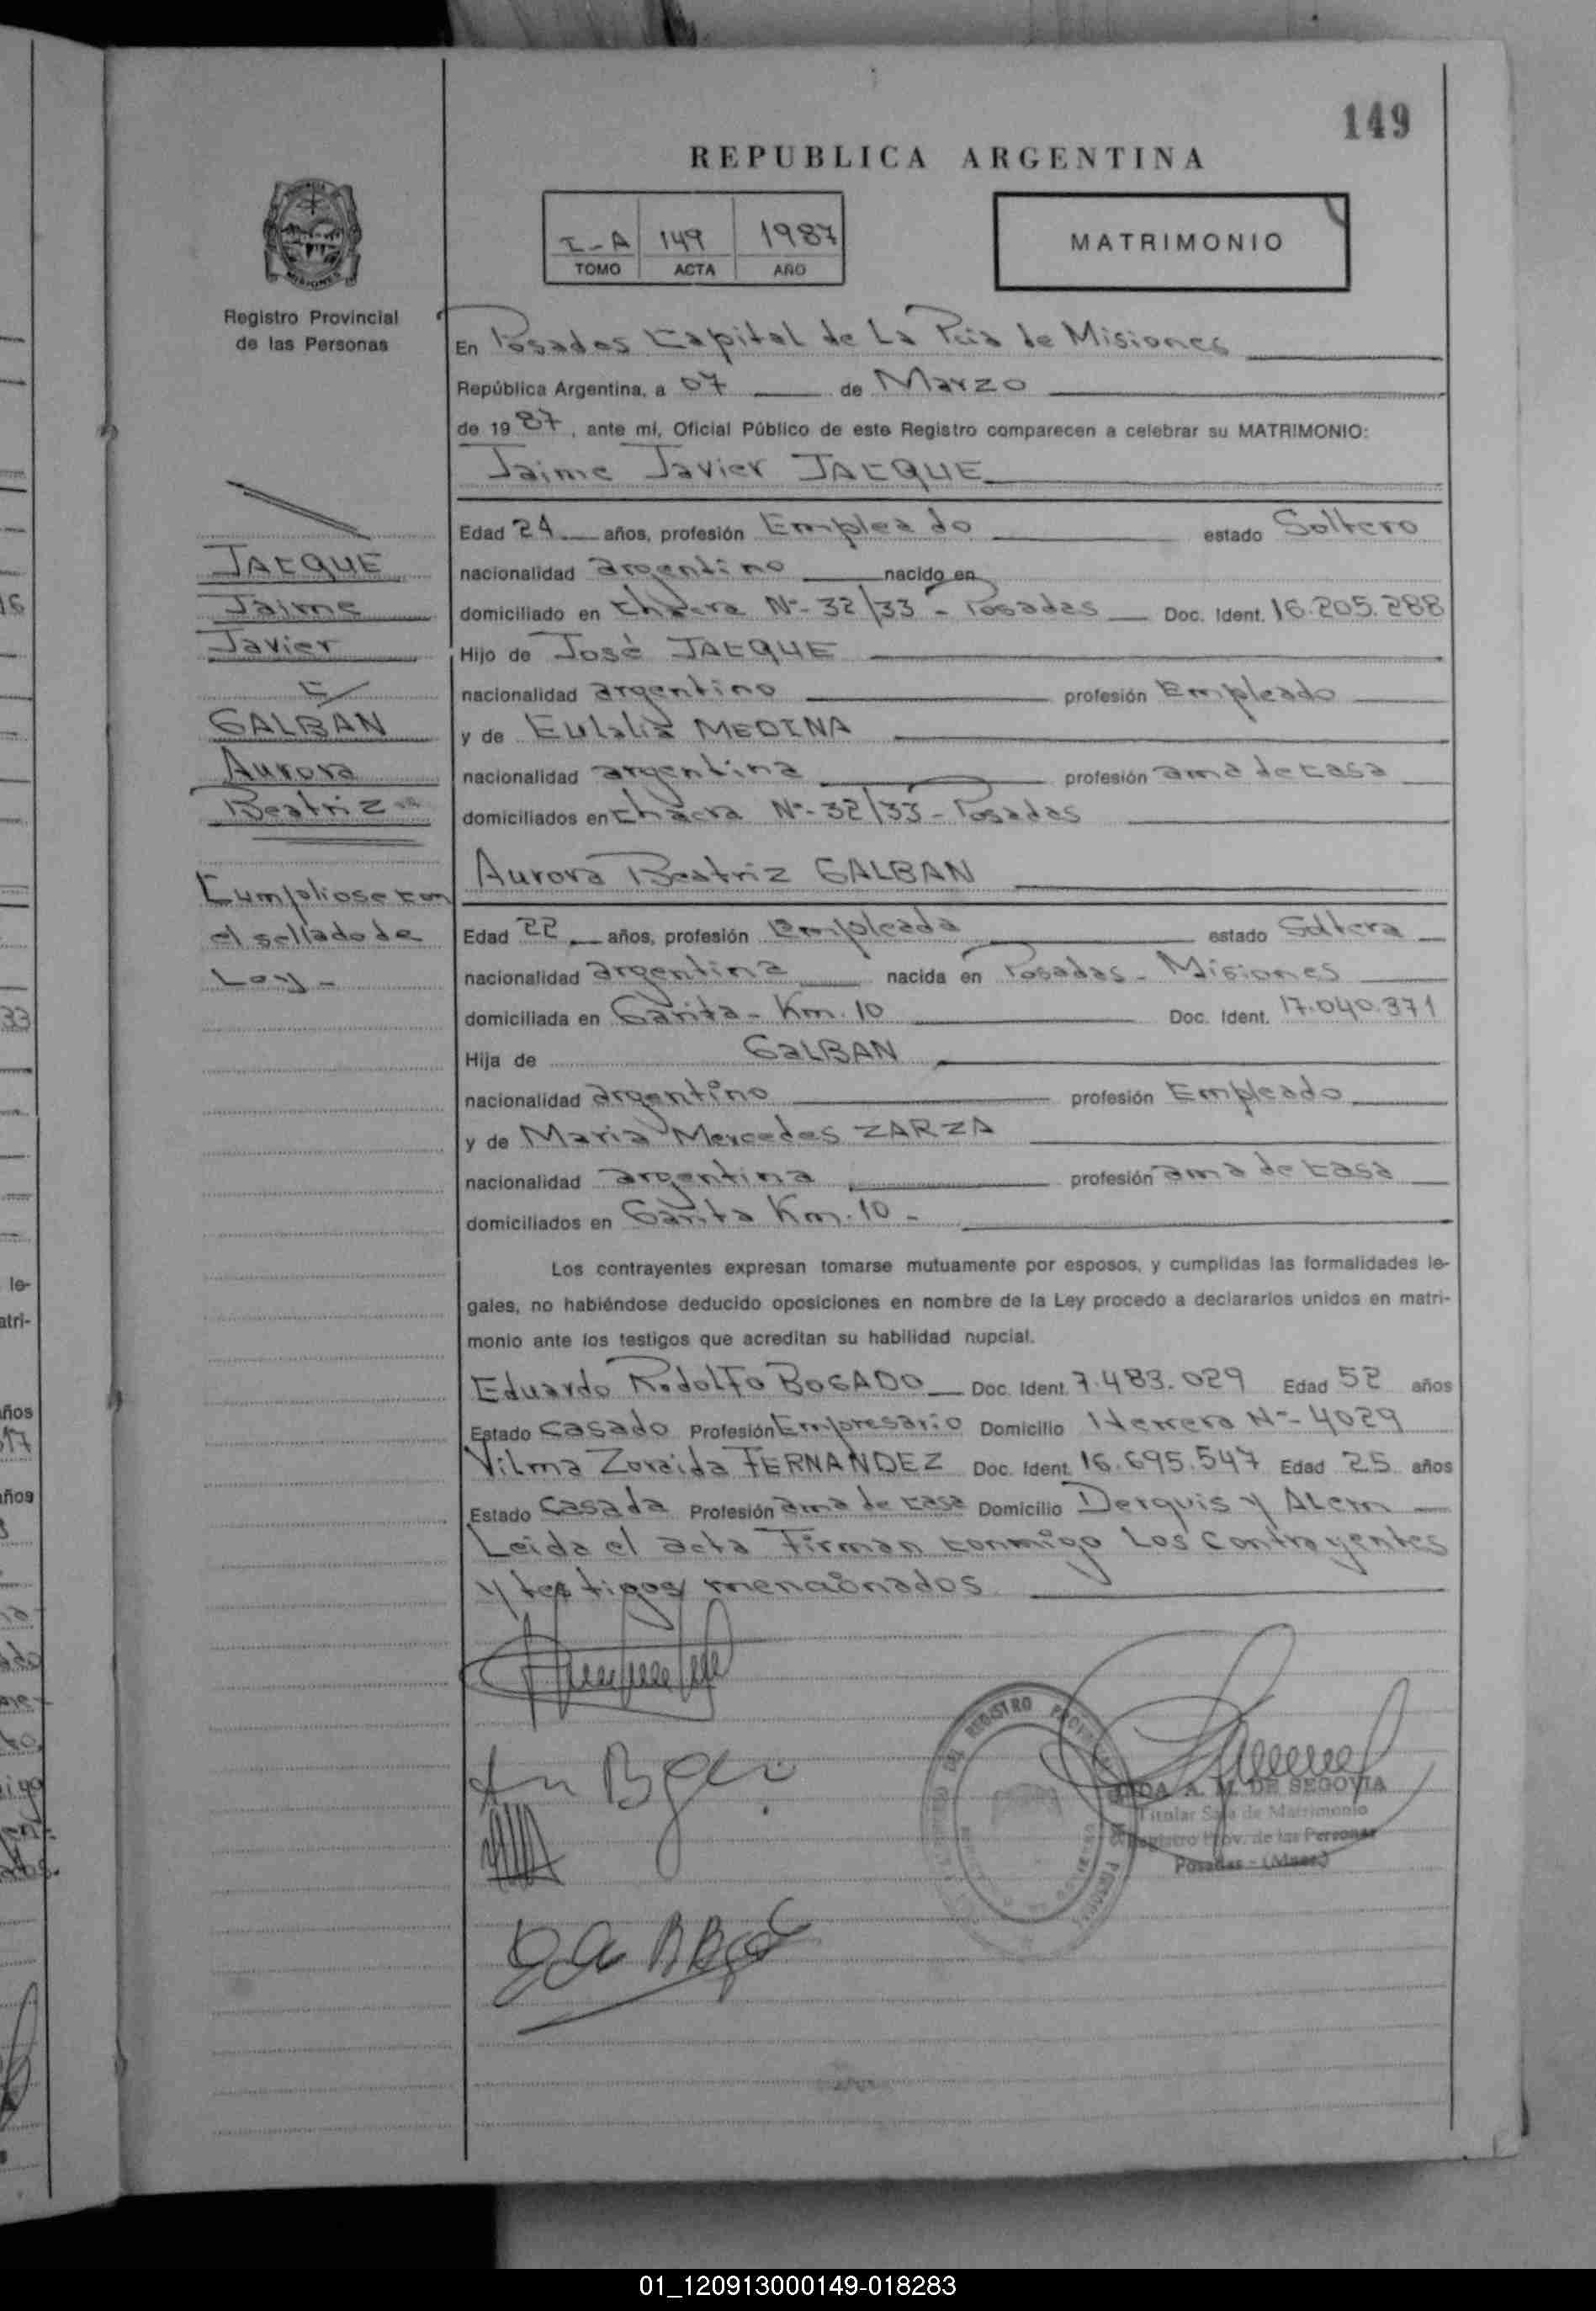 149
REPUBLICA ARGENTINA
I-A 149 1987
TOMO ACTA AÑO
MATRIMONIO
MISIONES
Registro Provincial
de las Personas
En Posadas Capital de La Pcia de Misiones
República Argentina, a 07 de Marzo
de 1987, ante mi, Oficial Público de este Registro comparecen a celebrar su MATRIMONIO:
Jaime Javier JACQUE
Edad 24 años, profesión Empleado estado Soltero
nacionalidad argentino nacido en
domiciliado en Chacra Nº- 32/33 - Posadas Doc. Ident. 16.205.288
Hijo de José JACQUE
nacionalidad argentino profesión Empleado
y de Eulalia MEDINA
nacionalidad argentina profesión ama de casa
domiciliados en Chacra Nº- 32/33 - Posadas
Aurora Beatriz GALBAN
Edad 22 años, profesión Empleada estado Soltera
nacionalidad argentina nacida en Posadas - Misiones
domiciliada en Garita - Km. 10 Doc. Ident. 17.040.371
Hija de GALBAN
nacionalidad argentino profesión Empleado
y de Maria Mercedes ZARZA
nacionalidad argentina profesión ama de casa
domiciliados en Garita Km. 10 -
Los contrayentes expresan tomarse mutuamente por esposos, y cumplidas las formalidades le-
gales, no habiéndose deducido oposiciones en nombre de la Ley procedo a declararlos unidos en matri-
monio ante los testigos que acreditan su habilidad nupcial.
Eduardo Rodolfo BOGADO Doc. Ident. 7.483.029 Edad 52 años
Estado Casado Profesión Empresario Domicilio Herrera Nº- 4029
Vilma Zoraida FERNANDEZ Doc. Ident. 16.695.547 Edad 25 años
Estado Casada Profesión ama de casa Domicilio Derquis y Alem
Leida el acta Firman conmigo Los Contrayentes
y testigos mencionados
JACQUE
Jaime
Javier
c/
GALBAN
Aurora
Beatriz
Cumpliose con
el sellado de
Ley -
DEL REGISTRO
A. M. DE SEGOVIA
Titular Sala de Matrimonio
Registro Prov. de las Personas
Posadas - (Mnes.)
01_120913000149-018283